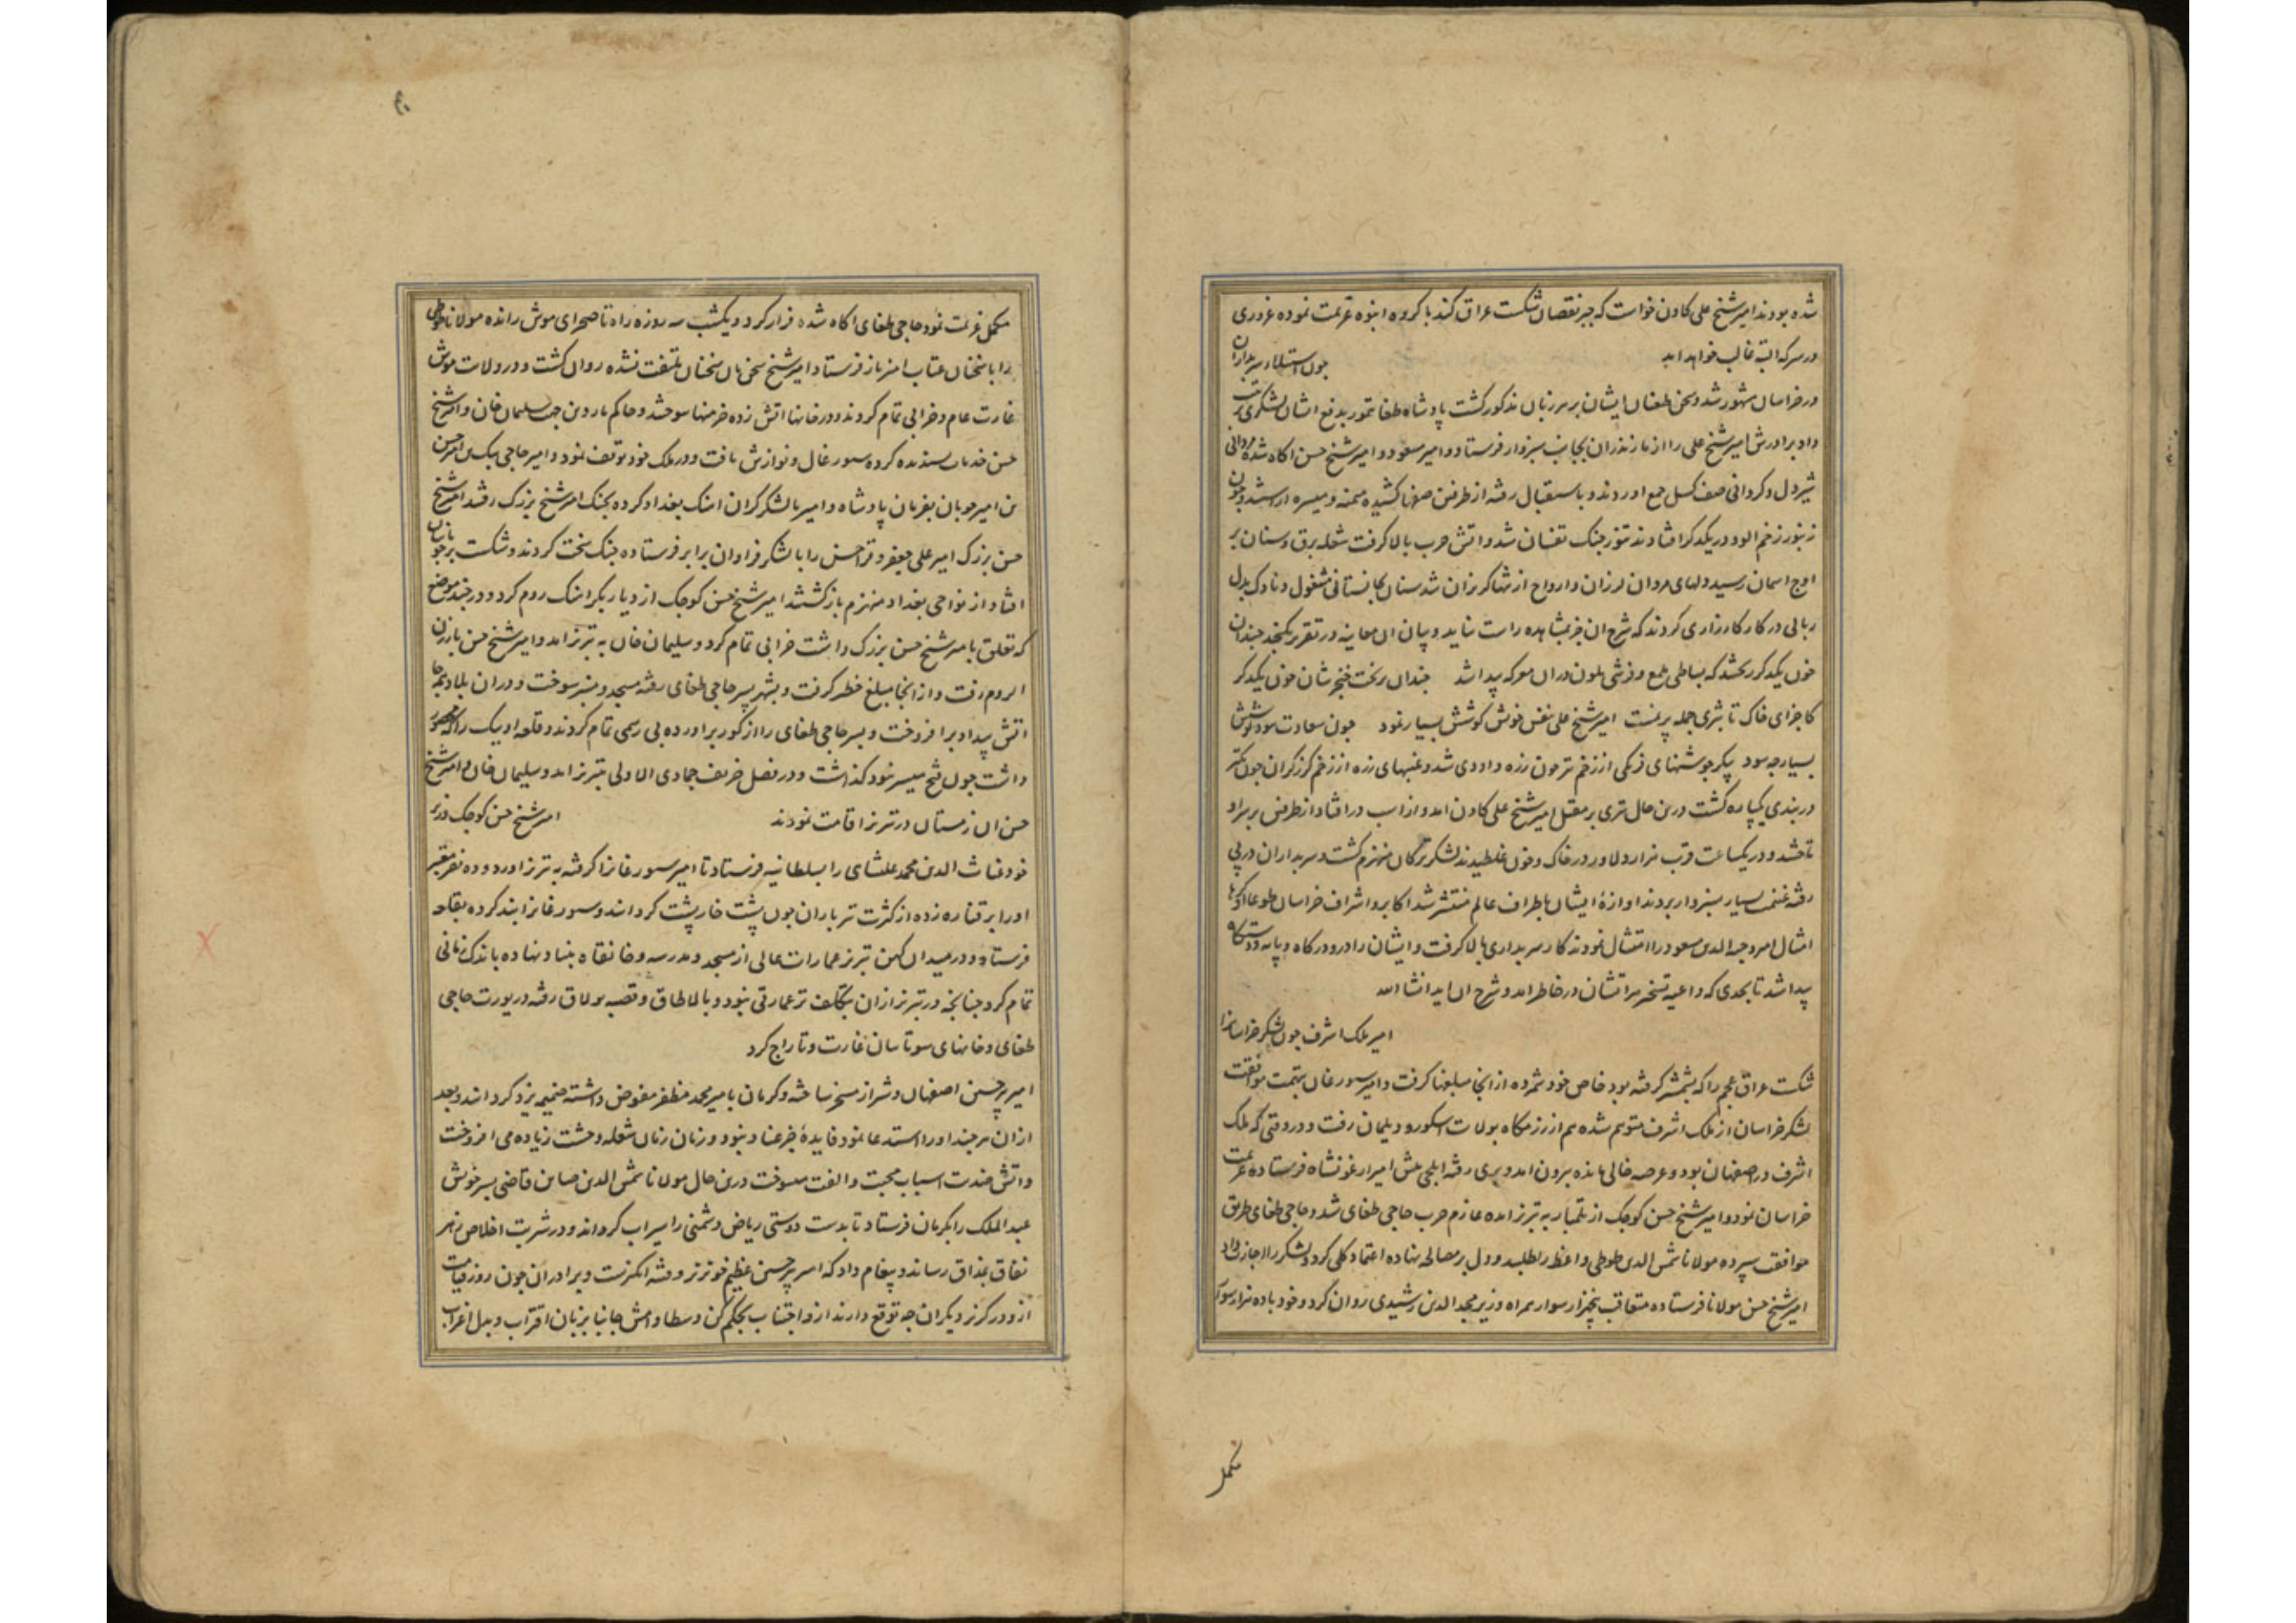 شده بودند امیر شیخ علی کاون خواست که جبر نقصان شکست عراق کند با کروه انبوه عزیمت نموده غروری
در سر که البته غالب خواهد امد جون استیلاء سربداران
در خراسان مشهور شد و سخن طغیان ایشان بر سر زبان مذکور کشت پادشاه طغا تمور بدفع ایشان لشکری ترتیب
داد برادرش امیر شیخ علی را از مازندران بجانب سبزوار فرستاد و امیر مسعود و امیر شیخ حسن اکاه شده مردانی
شیردل و کردانی صف کسل جمع اوردند و باستقبال رفته از طرفین صفها کشیده میمنه و میسره اراستند و جون
زنبور زخم الود در یکدکر افتادند تنور جنک تفسان شد و اتش حرب بالا کرفت شعله برق و سنان بر
اوج اسمان رسید و دلهای مردان لرزان و ارواح از تنها کریزان شد سنان بجانستانی مشغول و ناوک بدل
ربایی در کار کارزاری کردند که شرح ان جز بمشاهده راست نیاید و بیان ان معاینه در تقریر نکنجد جندان
خون یکدکر ریختند که بساطی لمع و فرشی ملون دران معرکه پیدا شد جندان بریخت خنجر شان خون یکدکر
کاجزای خاک تا بثری جمله بر نشست امیر شیخ علی بنفس خویش کوشش بسیار نمود جون سعادت نبود کوشش
بسیار جه سود پیکر جوشنهای فرنکی از زخم تیر جون زره داودی شد و غیبهای زره از زخم کرز کران جون تنکه
دربندی یکپاره کشت درین حال تیری بر مقتل امیر شیخ علی کاون امد و از اسب در افتاد از طرفین بر سر او
تاختند و در یکساعت قرب هزار دلاور در خاک و خون غلطیدند لشکر ترکان منهزم کشت و سربداران در پی
رفته غنیمت بسیار بسبزوار بردند و اوازهٔ ایشان باطراف عالم منتشر شد اکابر و اشراف خراسان طوعا او کرها
امثال امر وجیه الدین مسعود را امتثال نمودند کار سربداری بالا کرفت و ایشان را در و درکاه و پایه و دستکاه
پیدا شد تا بحدی که داعیه تسخیر هراتشان در خاطر امد و شرح ان اید انشا الله
امیر ملک اشرف جون لشکر خراسانرا
شکست عراق عجم را که بشمشیر کرفته بود خاص خود شمرده از انجا مبلغها کرفت و امیر سورغان بتهمت موافقت
لشکر خراسان از ملک اشرف متوهم شده هم از رزمکاه بولایت اسکورو دیلمان رفت و در وقتی که ملک
اشرف در اصفهان بود و عرصه خالی مانده بیرون امد و بری رفته ایلجی پیش امیر ارغونشاه فرستاده عزیمت
خراسان نمود و امیر شیخ حسن کوجک از تلمبار به تبریز امده عازم حرب حاجی طغای شد و حاجی طغای طریق
موافقت سپرده مولانا شمس الدین طوطی واعظ را طلبید و دل بر مصالحه نهاده اعتماد کلی کرد و لشکر را اجازت داد
امیر شیخ حسن مولانا فرستاده متعاقب پنجهزار سوار همراه وزیر مجد الدین رشیدی روان کرد و خود با ده هزار سوار
مکمل
مکمل عزیمت نمود حاجی طغای اکاه شده فرار کرد و بیکشب سه روزه راه تا صحرای موش رانده مولانا طوطی
را با سخنان عتاب امیز باز فرستاد امیر شیخ حسن بان سخنان ملتفت نشده روان کشت و در ولایت موش
غارت عام و خرابی تمام کردند و در خانها اتش زده خرمنها سوختند و حاکم ماردین جهت سلیمان خان و امیر شیخ
حسن خدمات پسندیده کرده سیورغال و نوازش یافت و در ملک خود توقف نمود و امیر حاجی بیک بن امیر حسن
بن امیر جوبان بفرمان پادشاه و امیر با لشکر کران اهنک بغداد کرده بجنک امیر شیخ بزرک رفتند امیر شیخ
حسن بزرک امیر علی جعفر و قراحسن را با لشکر فراوان برابر فرستاده جنک سخت کردند و شکست بر جوبانیان
افتاد از نواحی بغداد منهزم بازکشتند امیر شیخ حسن کوجک از دیار بکر اهنک روم کرد و در جند موضع
که تعلق بامیر شیخ حسن بزرک داشت خرابی تمام کرد و سلیمان خان به تبریز امد و امیر شیخ حسن بارزن
الروم رفت و از انجا مبلغ خطیر کرفت و بشهر پسر حاجی طغای رفته مسجد و منبر سوخت و دران بلاد همه جا
اتش بیداد برافروخت و پسر حاجی طغای را از کور براورده بی رسمی تمام کردند و قلعه اونیک را که محصور
داشت جون فتح میسر نبود کذاشت و در فصل خریف جمادی الاولی بتبریز امد و سلیمان خان و امیر شیخ
حسن ان زمستان در تبریز اقامت نمودند امیر شیخ حسن کوجک وزیر
خود غیاث الدین محمد علیشاهی را بسلطانیه فرستاد تا امیر سورغانرا کرفته به تبریز اورد و ده نفر معتبر
اورا بر قناره زده از کثرت تیرباران جون پشت خارپشت کردانید و سورغانرا بند کرده بقلعه
فرستاد و در میدان کهن تبریز عمارات عالی از مسجد و مدرسه و خانقاه بنیاد نهاده باندک زمانی
تمام کرد جنانجه در تبریز ازان بتکلف تر عمارتی نبود و بالاطاق و قصبه بولاق رفته در یورت حاجی
طغای و خانهای سوتایان غارت و تاراج کرد
امیر پیر حسین اصفهان و شیراز مسخر ساخته و کرمان بامیر محمد مظفر مفوض داشته ضمیمه یزد کردانید و بعد
ازان هر جند اورا استدعا نمود فایدهٔ جز عناد نبود و زمان زمان شعله وحشت زیاده می افروخت
و اتش ضدیت اسباب محبت و الفت میسوخت درین حال مولانا شمس الدین صاین قاضی پسر خویش
عبد الملک را بکرمان فرستاد تا بدست دوستی ریاض دشمنی را سیراب کرداند و در شربت اخلاص زهر
نفاق بمذاق رساند و پیغام داد که امیر پیر حسین عظیم خونریز و فتنه انکیزست و برادران جون روز قیامت
ازو در کریز دیکران جه توقع دارند ازو اجتناب بحکم کن و سطاوامش جانبا بزبان اقتراب و بدل اغراب